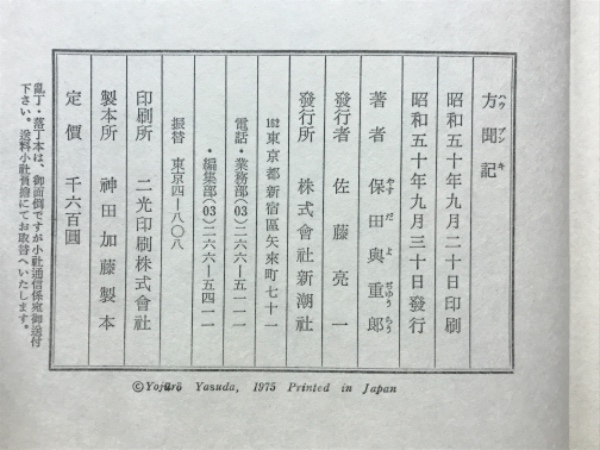 方聞記
ハウブンキ
昭和五十年九月二十日印刷
昭和五十年九月三十日發行
著者 保田與重郎
やすだよぢゆうらう
發行者 佐藤亮一
發行所 株式會社新潮社
162 東京都新宿區矢來町七十一
電話・業務部(03)二六六―五一一一
・編集部(03)二六六―五四一一
振替 東京四―八〇八
印刷所 二光印刷株式會社
製本所 神田加藤製本
定價 千六百圓
亂丁・落丁本は、御面倒ですが小社通信係宛御送付
下さい。送料小社負擔にてお取替へいたします。
©Yojūrō Yasuda, 1975 Printed in Japan